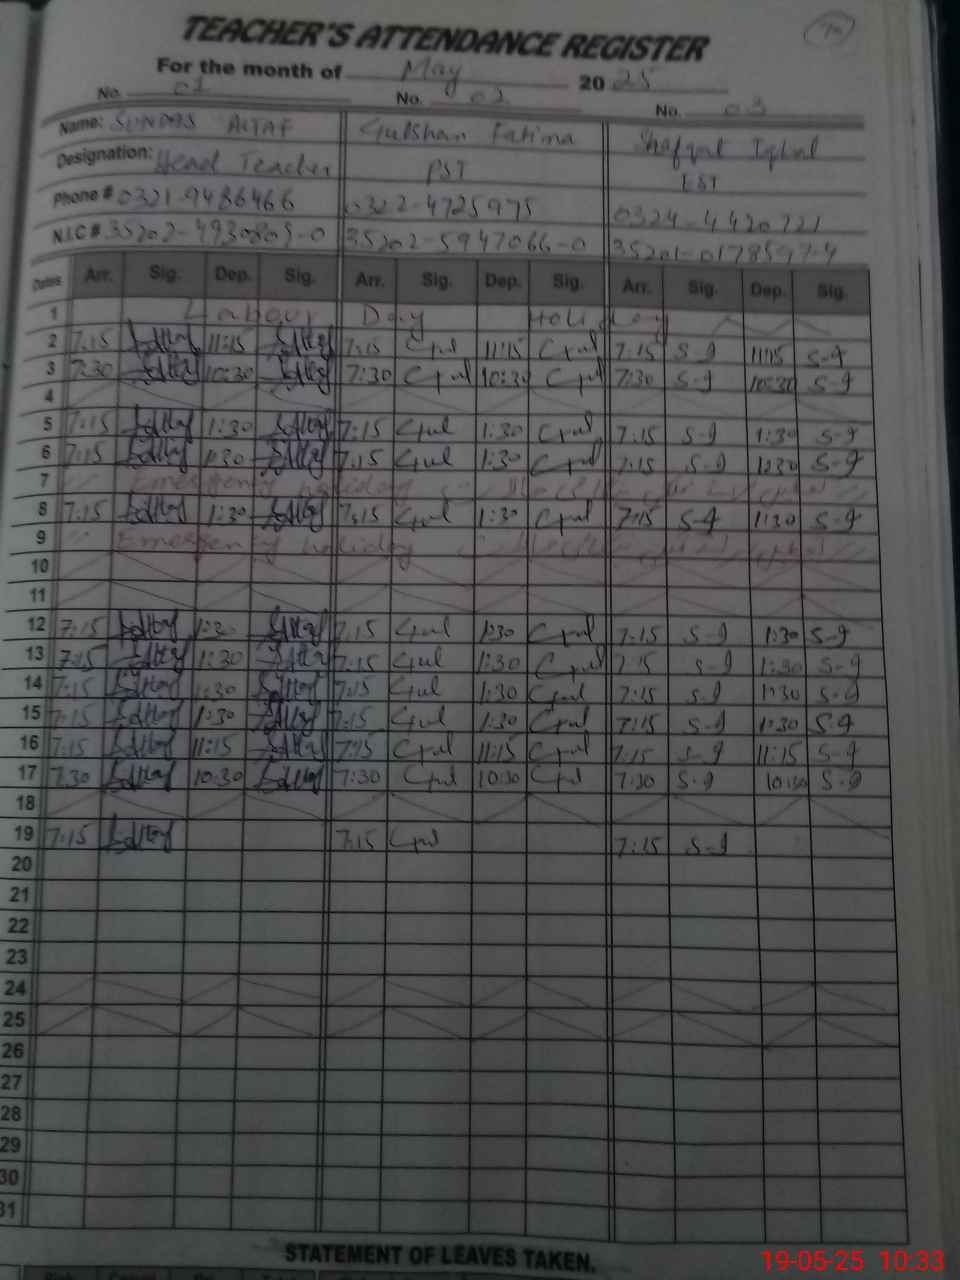 TEACHER'S ATTENDANCE REGISTER
For the month of May 2025
No. 01 No. 02 No. 03
Name: SUNDAS ALTAF Gulshan Fatima Shafqat Iqbal
Designation: Head Teacher PST EST
Phone # 0321-9486466 0322-4725975 0324-4420721
N.I.C # 35202-4930805-0 35202-5947066-0 35201-0178597-4
Dates Arr. Sig. Dep. Sig. Arr. Sig. Dep. Sig. Arr. Sig. Dep. Sig.
1 Labour Day Holiday
2 7:15 11:15 7:15 Gul 11:15 Gul 7:15 S-g 11:15 S-g
3 7:30 10:30 7:30 Gul 10:30 Gul 7:30 S-g 10:30 S-g
4
5 7:15 1:30 7:15 Gul 1:30 Gul 7:15 S-g 1:30 S-g
6 7:15 1:30 7:15 Gul 1:30 Gul 7:15 S-g 1:30 S-g
7 Emergency holiday
8 7:15 1:30 7:15 Gul 1:30 Gul 7:15 S-g 1:30 S-g
9 Emergency holiday
10
11
12 7:15 1:30 7:15 Gul 1:30 Gul 7:15 S-g 1:30 S-g
13 7:15 1:30 7:15 Gul 1:30 Gul 7:15 S-g 1:30 S-g
14 7:15 1:30 7:15 Gul 1:30 Gul 7:15 S-g 1:30 S-g
15 7:15 1:30 7:15 Gul 1:30 Gul 7:15 S-g 1:30 S-g
16 7:15 11:15 7:15 Gul 11:15 Gul 7:15 S-g 11:15 S-g
17 7:30 10:30 7:30 Gul 10:30 Gul 7:30 S-g 10:30 S-g
18
19 7:15 7:15 Gul 7:15 S-g
20
21
22
23
24
25
26
27
28
29
30
31
STATEMENT OF LEAVES TAKEN.
19-05-25 10:33